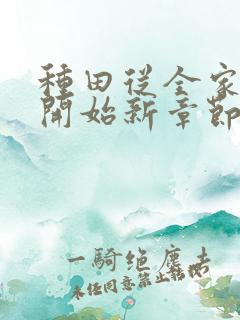 種田從全家
開始新章節
一騎绝塵去
未任同意禁止转载